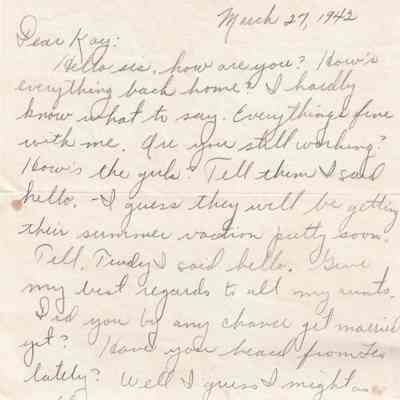 March 27, 1942
Dear Kay:
Hello sis, how are you? How's
everything back home? I hardly
know what to say. Everythings fine
with me. Are you still working?
How's the girls? Tell them I said
hello. - I guess they will be getting
their summer vaction pretty soon.
Tell, Trudy I said hello. Give
my best regards to all my aunts.
Did you by any chance get married
yet? Have you heard from
lately? Well I guess I might as